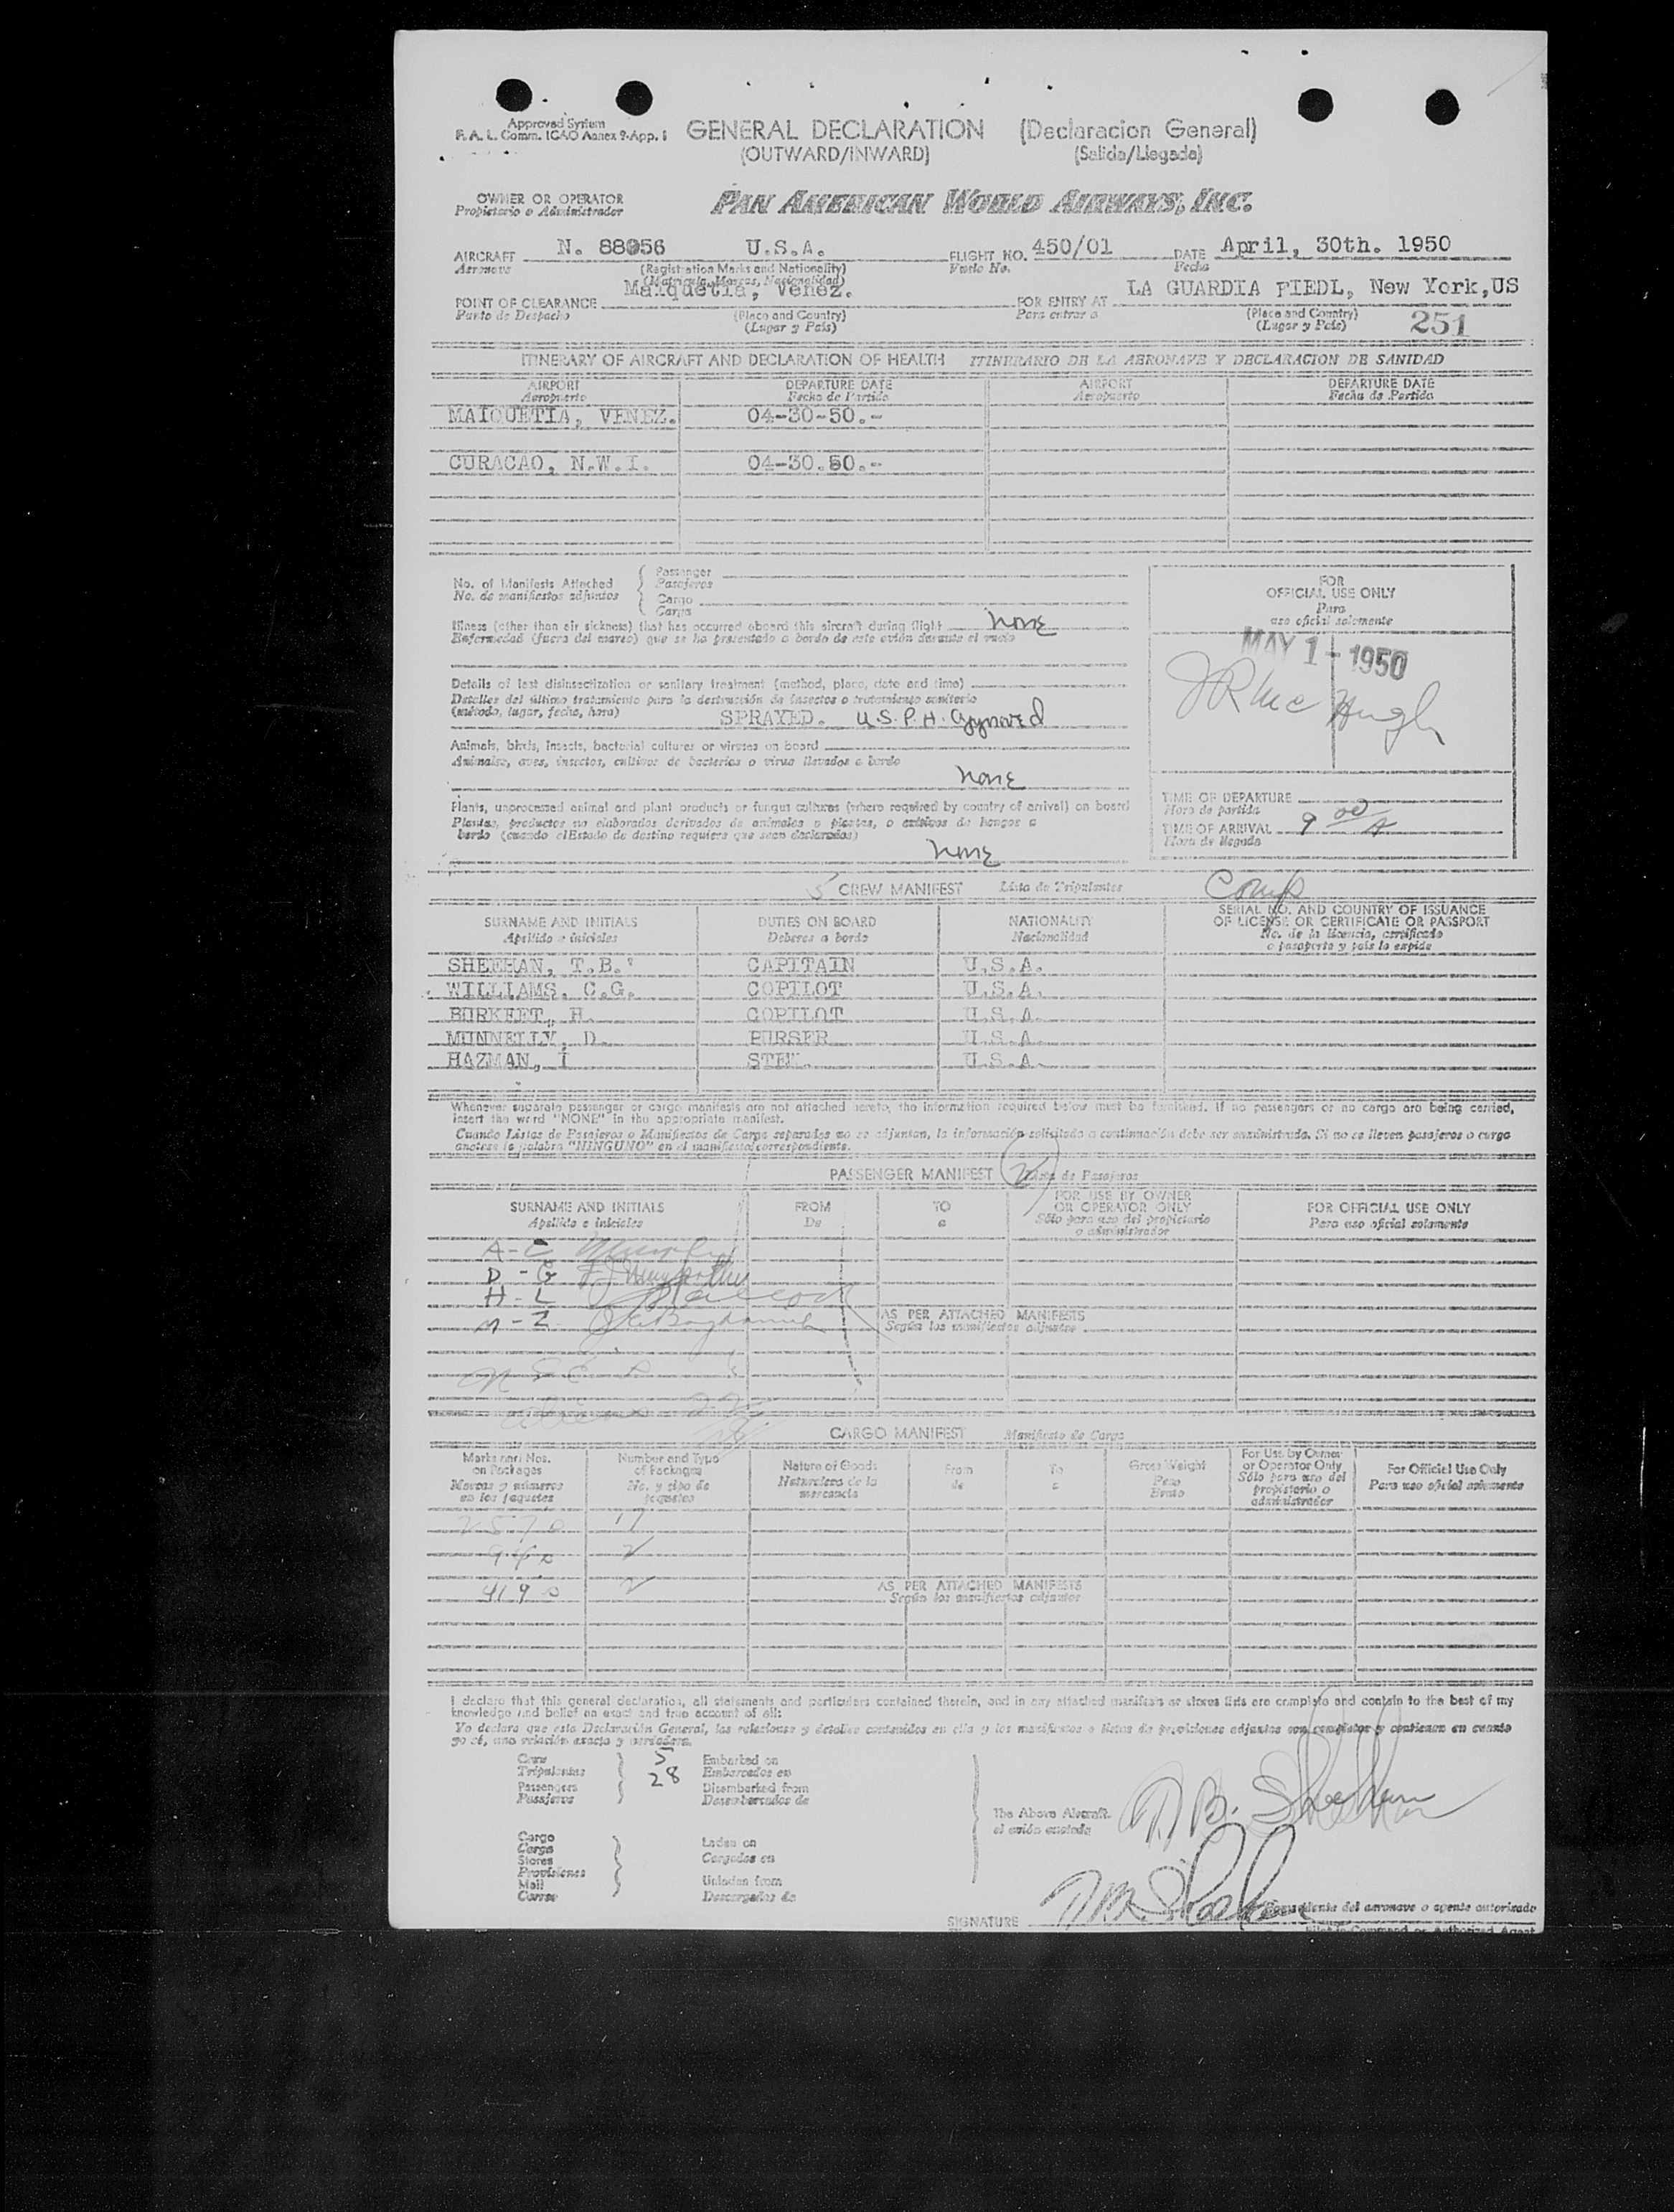 Approved System
F. A. L. Comm. ICAO Annex 9-App. 1
GENERAL DECLARATION (Declaracion General)
(OUTWARD/INWARD) (Salida/Llegada)
OWNER OR OPERATOR
Propietario o Administrador
PAN AMERICAN WORLD AIRWAYS, INC.
AIRCRAFT N. 88956 U.S.A. FLIGHT NO. 450/01 DATE April, 30th. 1950
Aeronave (Registration Marks and Nationality) Vuelo No. Fecha
(Matricula, Marcas, Nacionalidad)
Maiquetia, Venez. LA GUARDIA FIEDL, New York,US
POINT OF CLEARANCE FOR ENTRY AT
Punto de Despacho (Place and Country) Para entrar a (Place and Country)
(Lugar y País) (Lugar y País) 251
ITINERARY OF AIRCRAFT AND DECLARATION OF HEALTH ITINERARIO DE LA AERONAVE Y DECLARACION DE SANIDAD
AIRPORT DEPARTURE DATE AIRPORT DEPARTURE DATE
Aeropuerto Fecha de Partida Aeropuerto Fecha de Partida
MAIQUETIA, VENEZ. 04-30-50.-
CURACAO, N.W.I. 04-30.50.-
No. of Manifests Attached
No. de manifiestos adjuntos
Passenger
Pasajeros
Cargo
Carga
Illness (other than air sickness) that has occurred aboard this aircraft during flight None
Enfermedad (fuera del mareo) que se ha presentado a bordo de este avión durante el vuelo
Details of last disinsectization or sanitary treatment (method, place, date and time)
Detalles del último tratamiento para la destrucción de insectos o tratamiento sanitario
(método, lugar, fecha, hora)
SPRAYED. U.S.P.H. Approved
Animals, birds, insects, bacterial cultures or viruses on board
Animales, aves, insectos, cultivos de bacterias o virus llevados a bordo
None
Plants, unprocessed animal and plant products or fungus cultures (where required by country of arrival) on board
Plantas, productos no elaborados derivados de animales o plantas, o cultivos de hongos a
bordo (cuando el Estado de destino requiera que sean declarados)
None
FOR
OFFICIAL USE ONLY
Para
uso oficial solamente
MAY 1 - 1950
JR McHugh
TIME OF DEPARTURE
Hora de partida
TIME OF ARRIVAL 9 00 A
Hora de llegada
5 CREW MANIFEST Lista de Tripulantes Comp
SURNAME AND INITIALS DUTIES ON BOARD NATIONALITY SERIAL NO. AND COUNTRY OF ISSUANCE
OF LICENSE OR CERTIFICATE OR PASSPORT
Apellido e iniciales Deberes a bordo Nacionalidad No. de la licencia, certificado
o pasaporte y pais lo expide
SHEEHAN, T.B. CAPITAIN U.S.A.
WILLIAMS. C.G. COPILOT U.S.A.
BURKEET, H. COPILOT U.S.A.
MUNNELLY, D. PURSER U.S.A.
HAZMAN, I STEW. U.S.A.
Whenever separate passenger or cargo manifests are not attached hereto, the information required below must be furnished. If no passengers or no cargo are being carried,
insert the word "NONE" in the appropriate manifest.
Cuando Listas de Pasajeros o Manifiestos de Carga separados no se adjuntan, la información solicitada a continuación debe ser suministrada. Si no se llevan pasajeros o carga
anotese la palabra "NINGUNO" en el manifiesto correspondiente.
PASSENGER MANIFEST Lista de Pasajeros
SURNAME AND INITIALS FROM TO FOR USE BY OWNER
OR OPERATOR ONLY FOR OFFICIAL USE ONLY
Apellido e iniciales De a Sólo para uso del propietario
o administrador Para uso oficial solamente
A-C Murphy
D-G
H-L
M-Z
AS PER ATTACHED MANIFESTS
Según los manifiestos adjuntos
CARGO MANIFEST Manifiesto de Carga
Marks and Nos.
on Packages
Marcas y números
en los paquetes
Number and Type
of Packages
No. y tipo de
paquetes
Nature of Goods
Naturaleza de la
mercancia
From
de
To
a
Gross Weight
Peso
Bruto
For Use by Owner
or Operator Only
Sólo para uso del
propietario o
administrador
For Official Use Only
Para uso oficial solamente
AS PER ATTACHED MANIFESTS
Según los manifiestos adjuntos
I declare that this general declaration, all statements and particulars contained therein, and in any attached manifests or stores lists are complete and contain to the best of my
knowledge and belief an exact and true account of all:
Yo declaro que esta Declaración General, las relaciones y detalles contenidos en ella y los manifiestos o listas de provisiones adjuntas son completos y contienen en cuanto
yo sé, una relación exacta y verdadera.
Crew 5 Embarked on
Tripulantes Embarcados en
Passengers 28 Disembarked from
Pasajeros Desembarcados de
The Above Aircraft.
el avión anotado
T.B. Sheehan
Cargo
Carga
Stores
Provisiones
Mail
Correo
Laden on
Cargados en
Unladen from
Descargados de
SIGNATURE
del aeronave o agente autorizado
Pilot in Command or Authorized Agent